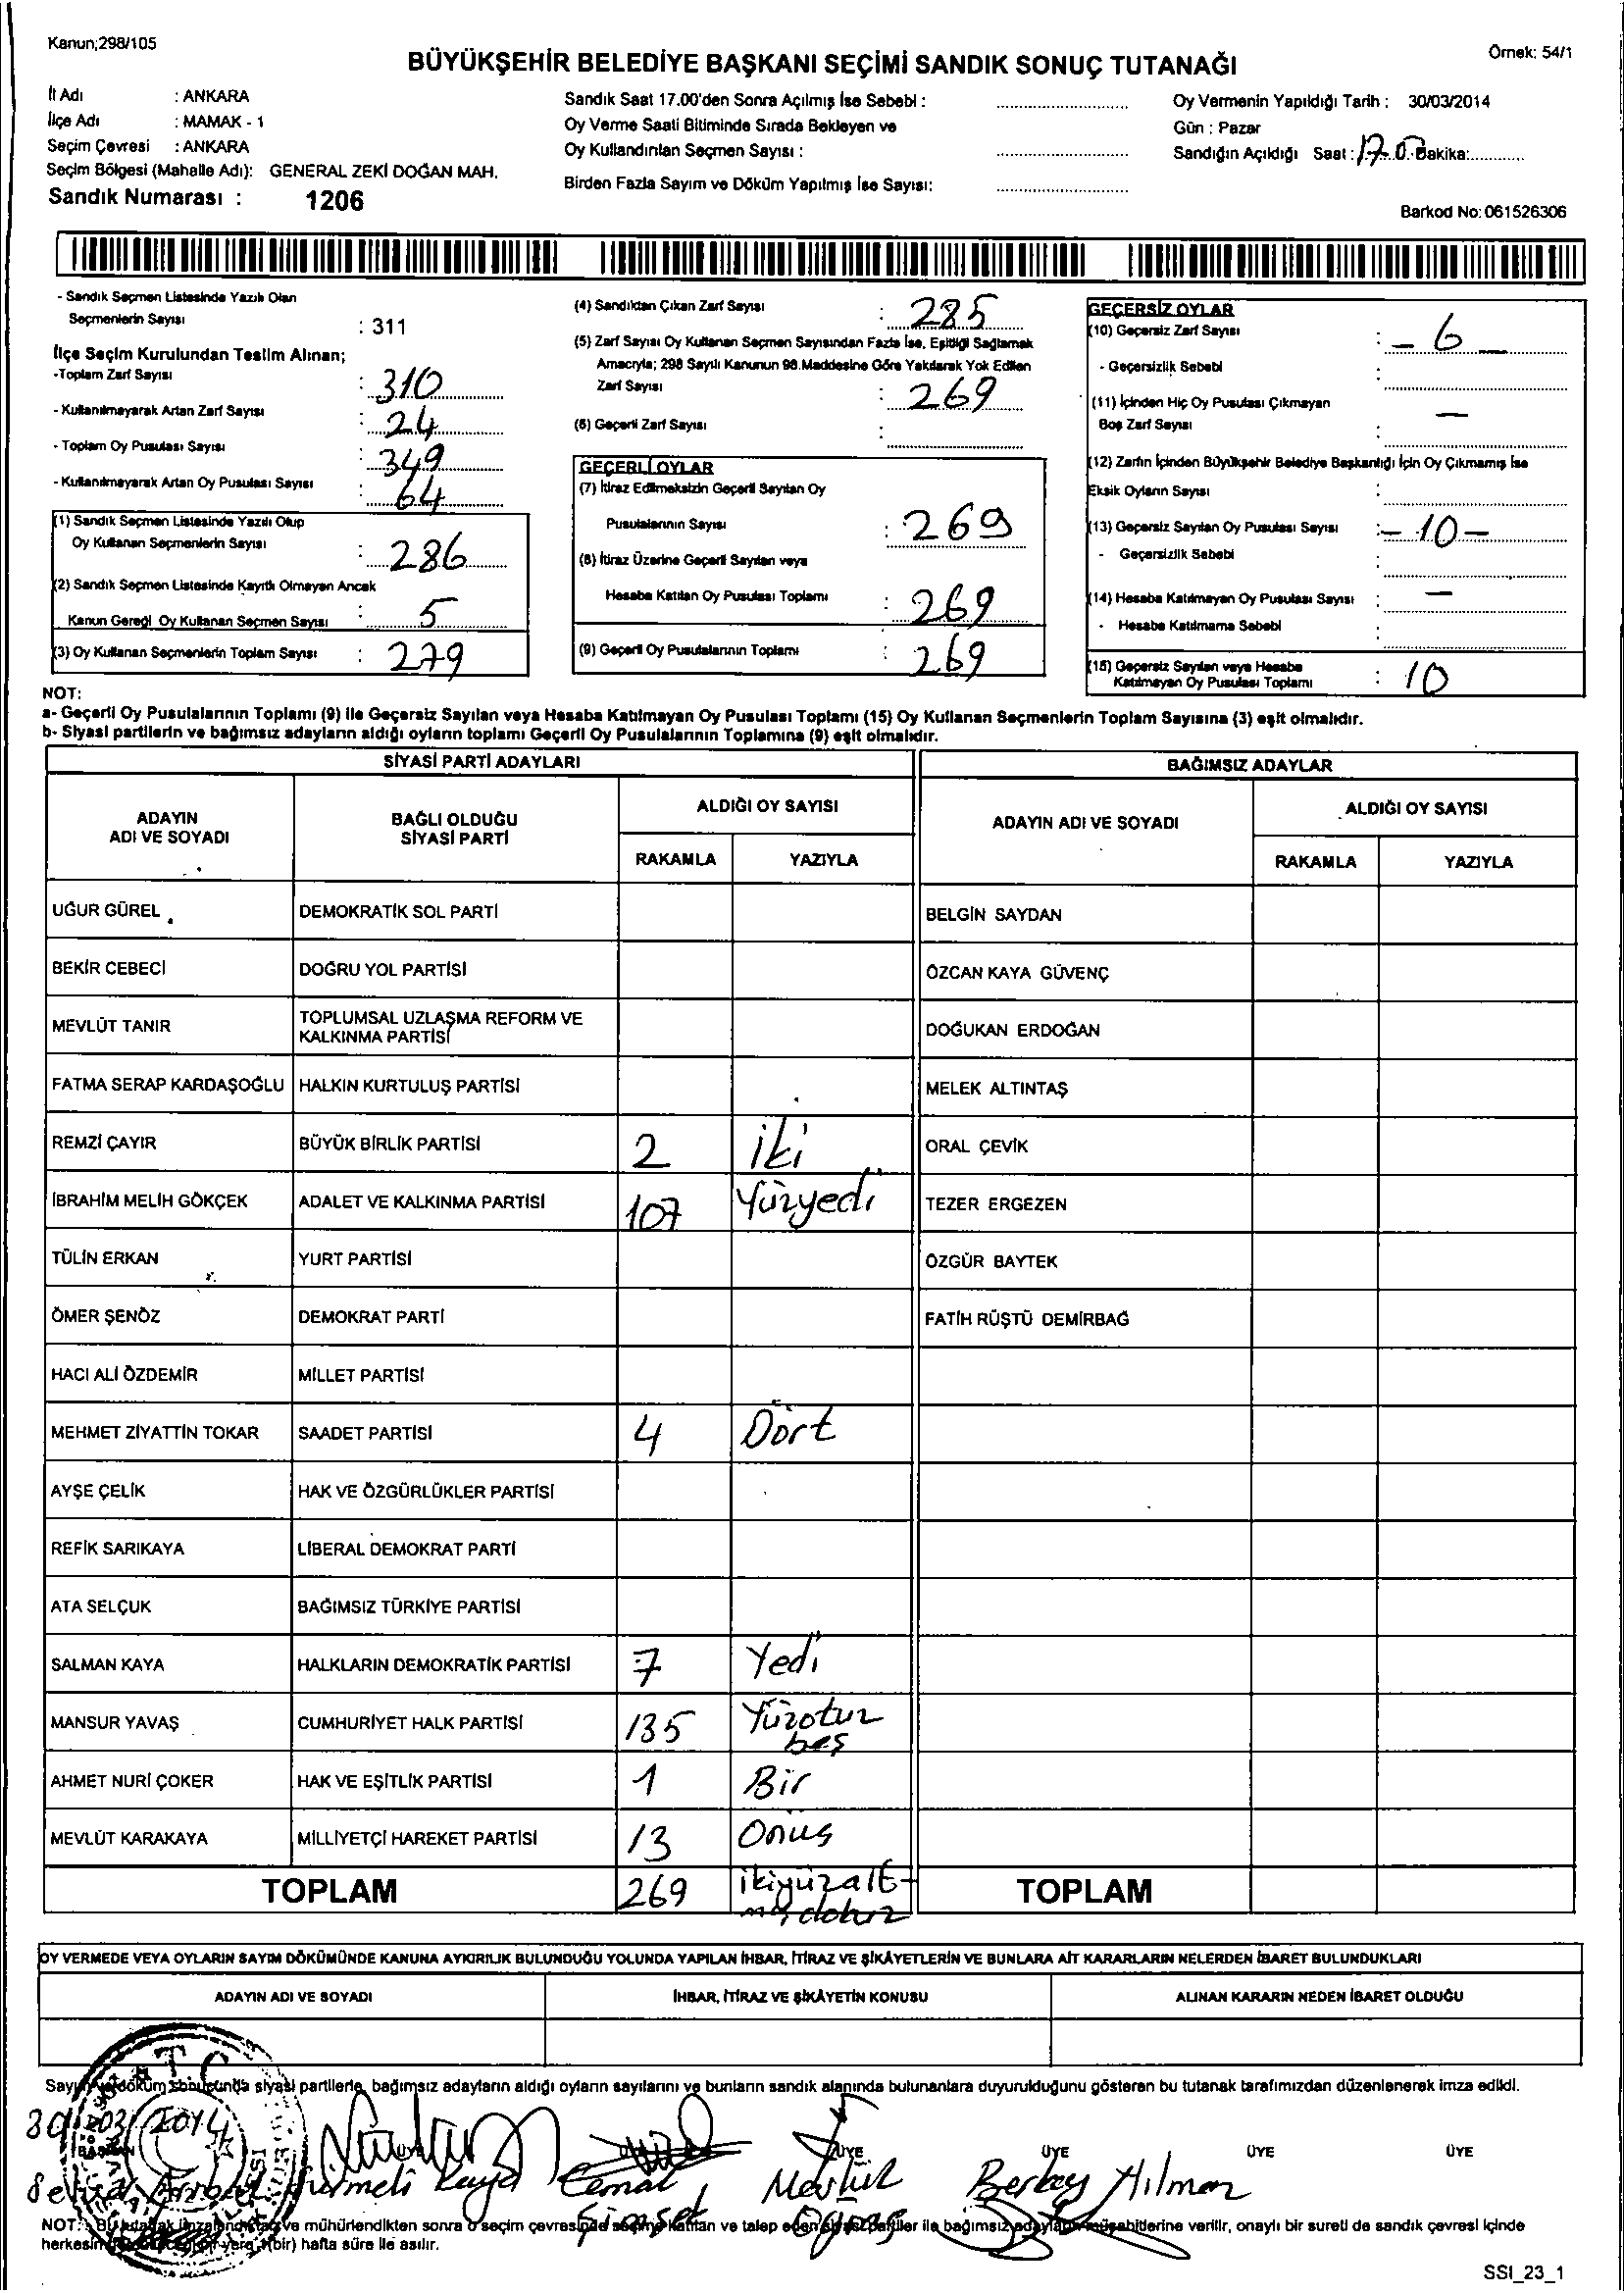 Kanun;298/105
Örnek: 54/1
BÜYÜKŞEHİR BELEDİYE BAŞKANI SEÇİMİ SANDIK SONUÇ TUTANAĞI
İl Adı : ANKARA
İlçe Adı : MAMAK - 1
Seçim Çevresi : ANKARA
Seçim Bölgesi (Mahalle Adı): GENERAL ZEKİ DOĞAN MAH.
Sandık Numarası : 1206
Sandık Saat 17.00'den Sonra Açılmış İse Sebebi :
Oy Verme Saati Bitiminde Sırada Bekleyen ve
Oy Kullandırılan Seçmen Sayısı :
Birden Fazla Sayım ve Döküm Yapılmış İse Sayısı:
Oy Vermenin Yapıldığı Tarih : 30/03/2014
Gün : Pazar
Sandığın Açıldığı Saat : 17.0 Dakika:
Barkod No: 061526306
- Sandık Seçmen Listesinde Yazılı Olan
Seçmenlerin Sayısı : 311
İlçe Seçim Kurulundan Teslim Alınan;
-Toplam Zarf Sayısı : 310
- Kullanılmayarak Artan Zarf Sayısı : 24
- Toplam Oy Pusulası Sayısı : 349
- Kullanılmayarak Artan Oy Pusulası Sayısı : 64
(1) Sandık Seçmen Listesinde Yazılı Olup
Oy Kullanan Seçmenlerin Sayısı : 286
(2) Sandık Seçmen Listesinde Kayıtlı Olmayan Ancak
Kanun Gereği Oy Kullanan Seçmen Sayısı : 5
(3) Oy Kullanan Seçmenlerin Toplam Sayısı : 279
(4) Sandıktan Çıkan Zarf Sayısı : 285
(5) Zarf Sayısı Oy Kullanan Seçmen Sayısından Fazla İse, Eşitliği Sağlamak
Amacıyla; 298 Sayılı Kanunun 98.Maddesine Göre Yakılarak Yok Edilen
Zarf Sayısı : 269
(6) Geçerli Zarf Sayısı :
GEÇERLİ OYLAR
(7) İtiraz Edilmeksizin Geçerli Sayılan Oy
Pusulalarının Sayısı : 269
(8) İtiraz Üzerine Geçerli Sayılan veya
Hesaba Katılan Oy Pusulası Toplamı : 269
(9) Geçerli Oy Pusulalarının Toplamı : 269
GEÇERSİZ OYLAR
(10) Geçersiz Zarf Sayısı : - 6 -
- Geçersizlik Sebebi :
(11) İçinden Hiç Oy Pusulası Çıkmayan
Boş Zarf Sayısı : -
(12) Zarfın İçinden Büyükşehir Belediye Başkanlığı İçin Oy Çıkmamış İse
Eksik Oyların Sayısı :
(13) Geçersiz Sayılan Oy Pusulası Sayısı : - 10 -
- Geçersizlik Sebebi :
(14) Hesaba Katılmayan Oy Pusulası Sayısı : -
- Hesaba Katılmama Sebebi :
(15) Geçersiz Sayılan veya Hesaba
Katılmayan Oy Pusulası Toplamı : 10
NOT:
a- Geçerli Oy Pusulalarının Toplamı (9) ile Geçersiz Sayılan veya Hesaba Katılmayan Oy Pusulası Toplamı (15) Oy Kullanan Seçmenlerin Toplam Sayısına (3) eşit olmalıdır.
b- Siyasi partilerin ve bağımsız adayların aldığı oyların toplamı Geçerli Oy Pusulalarının Toplamına (9) eşit olmalıdır.
SİYASİ PARTİ ADAYLARI
BAĞIMSIZ ADAYLAR
ADAYIN ADI VE SOYADI
BAĞLI OLDUĞU SİYASİ PARTİ
ALDIĞI OY SAYISI
RAKAMLA YAZIYLA
ADAYIN ADI VE SOYADI
ALDIĞI OY SAYISI
RAKAMLA YAZIYLA
UĞUR GÜREL DEMOKRATİK SOL PARTİ BELGİN SAYDAN
BEKİR CEBECİ DOĞRU YOL PARTİSİ ÖZCAN KAYA GÜVENÇ
MEVLÜT TANIR TOPLUMSAL UZLAŞMA REFORM VE KALKINMA PARTİSİ DOĞUKAN ERDOĞAN
FATMA SERAP KARDAŞOĞLU HALKIN KURTULUŞ PARTİSİ MELEK ALTINTAŞ
REMZİ ÇAYIR BÜYÜK BİRLİK PARTİSİ 2 iki ORAL ÇEVİK
İBRAHİM MELİH GÖKÇEK ADALET VE KALKINMA PARTİSİ 107 Yüzyedi TEZER ERGEZEN
TÜLİN ERKAN YURT PARTİSİ ÖZGÜR BAYTEK
ÖMER ŞENÖZ DEMOKRAT PARTİ FATİH RÜŞTÜ DEMİRBAĞ
HACI ALİ ÖZDEMİR MİLLET PARTİSİ
MEHMET ZİYATTİN TOKAR SAADET PARTİSİ 4 Dört
AYŞE ÇELİK HAK VE ÖZGÜRLÜKLER PARTİSİ
REFİK SARIKAYA LİBERAL DEMOKRAT PARTİ
ATA SELÇUK BAĞIMSIZ TÜRKİYE PARTİSİ
SALMAN KAYA HALKLARIN DEMOKRATİK PARTİSİ 7 Yedi
MANSUR YAVAŞ CUMHURİYET HALK PARTİSİ 135 Yüzotuz beş
AHMET NURİ ÇOKER HAK VE EŞİTLİK PARTİSİ 1 Bir
MEVLÜT KARAKAYA MİLLİYETÇİ HAREKET PARTİSİ 13 Onüs
TOPLAM 269 ikiyüzalt-mış dokuz TOPLAM
OY VERMEDE VEYA OYLARIN SAYIM DÖKÜMÜNDE KANUNA AYKIRILIK BULUNDUĞU YOLUNDA YAPILAN İHBAR, İTİRAZ VE ŞİKÂYETLERİN VE BUNLARA AİT KARARLARIN NELERDEN İBARET BULUNDUKLARI
ADAYIN ADI VE SOYADI
İHBAR, İTİRAZ VE ŞİKÂYETİN KONUSU
ALINAN KARARIN NEDEN İBARET OLDUĞU
Sayım ve döküm sonucunda siyasi partilerle, bağımsız adayların aldığı oyların sayılarını ve bunların sandık alanında bulunanlara duyurulduğunu gösteren bu tutanak tarafımızdan düzenlenerek imza edildi.
30/03/2014 T.C
BAŞKAN ÜYE ÜYE ÜYE ÜYE ÜYE
Hürmeti Kaya Cemal Şimşek Mevlüt Berkay Hılmaz
NOT: ve mühürlendikten sonra o seçim çevresinde seçime katılan ve talep eden siyasi partiler ile bağımsız adayların müşahitlerine verilir, onaylı bir sureti de sandık çevresi içinde
herkesin yere 1(bir) hafta süre ile asılır.
SSI_23_1